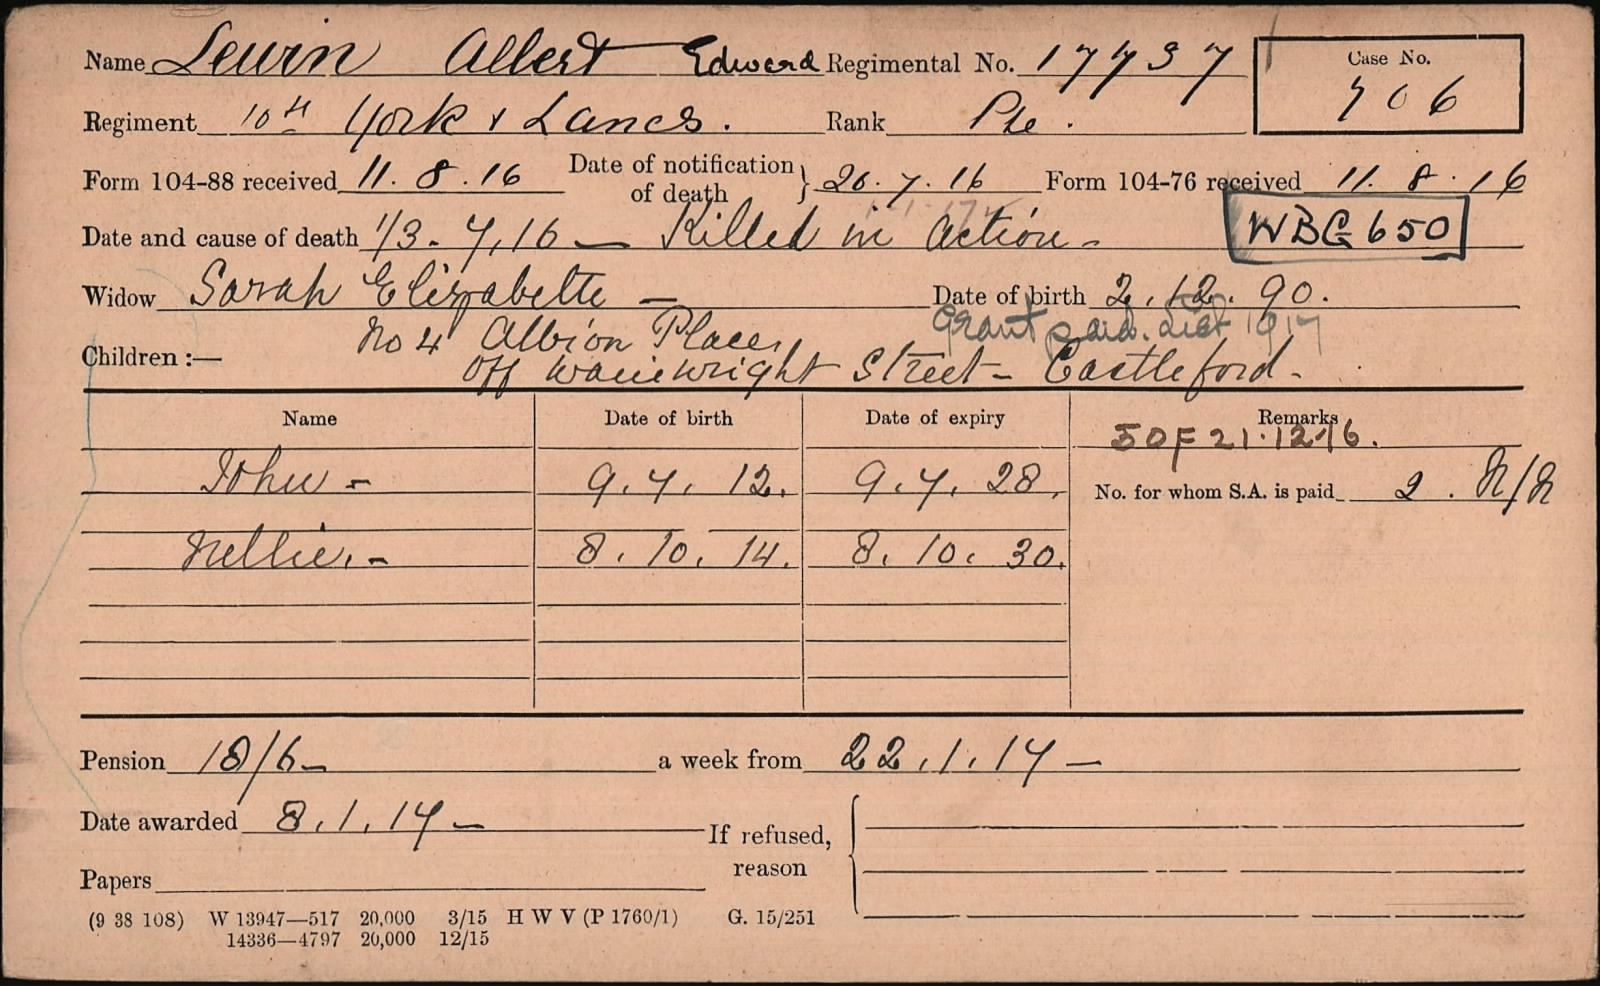 Name Lewin Albert Edward Regimental No. 17737 Case No. 706
Regiment 10th York & Lancs. Rank Pte.
Form 104-88 received 11.8.16 Date of notification of death } 20.7.16 Form 104-76 received 11.8.16
Date and cause of death 1/3.7.16 — Killed in Action - WBG 650
Widow Sarah Elizabeth — Date of birth 2.12.90.
Grant paid. List 1917
Children :— No 4 Albion Place,
off Wainwright Street - Castleford -
Name Date of birth Date of expiry Remarks
SOF 21.12.16.
John - 9.7.12. 9.7.28. No. for whom S.A. is paid 2. N/N
Nellie. - 8.10.14. 8.10.30.
Pension 18/6 - a week from 22.1.17 —
Date awarded 8.1.17 - If refused, reason
Papers
(9 38 108) W 13947—517 20,000 3/15 H W V (P 1760/1) G. 15/251
14336—4797 20,000 12/15